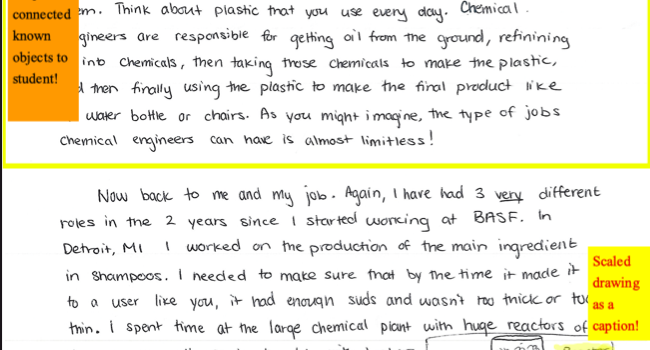 connected
known
objects to
student!
em. Think about plastic that you use every day. Chemical
gineers are responsible for getting oil from the ground, refinining
into chemicals, then taking those chemicals to make the plastic,
then finally using the plastic to make the final product like
water bottle or chairs. As you might imagine, the type of jobs
chemical engineers can have is almost limitless!
Now back to me and my job. Again, I have had 3 very different
roles in the 2 years since I started working at BASF. In
Detroit, MI I worked on the production of the main ingredient
in shampoos. I needed to make sure that by the time it made it
to a user like you, it had enough suds and wasn't too thick or too
thin. I spent time at the large chemical plant with huge reactors of
Scaled
drawing
as a
caption!